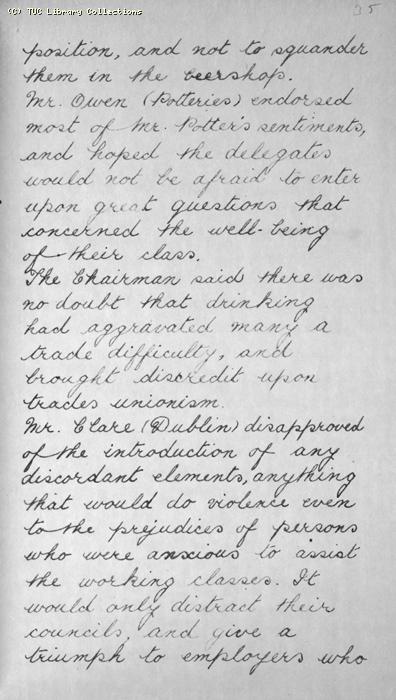 (C) TUC Library Collections
35
position, and not to squander
them in the beershop.
Mr. Owen (Potteries) endorsed
most of Mr. Potter's sentiments,
and hoped the delegates
would not be afraid to enter
upon great questions that
concerned the well-being
of their class.
The Chairman said there was
no doubt that drinking
had aggravated many a
trade difficulty, and
brought discredit upon
trades unionism.
Mr. Clare (Dublin) disapproved
of the introduction of any
discordant elements, anything
that would do violence even
to the prejudices of persons
who were anxious to assist
the working classes. It
would only distract their
councils, and give a
triumph to employers who